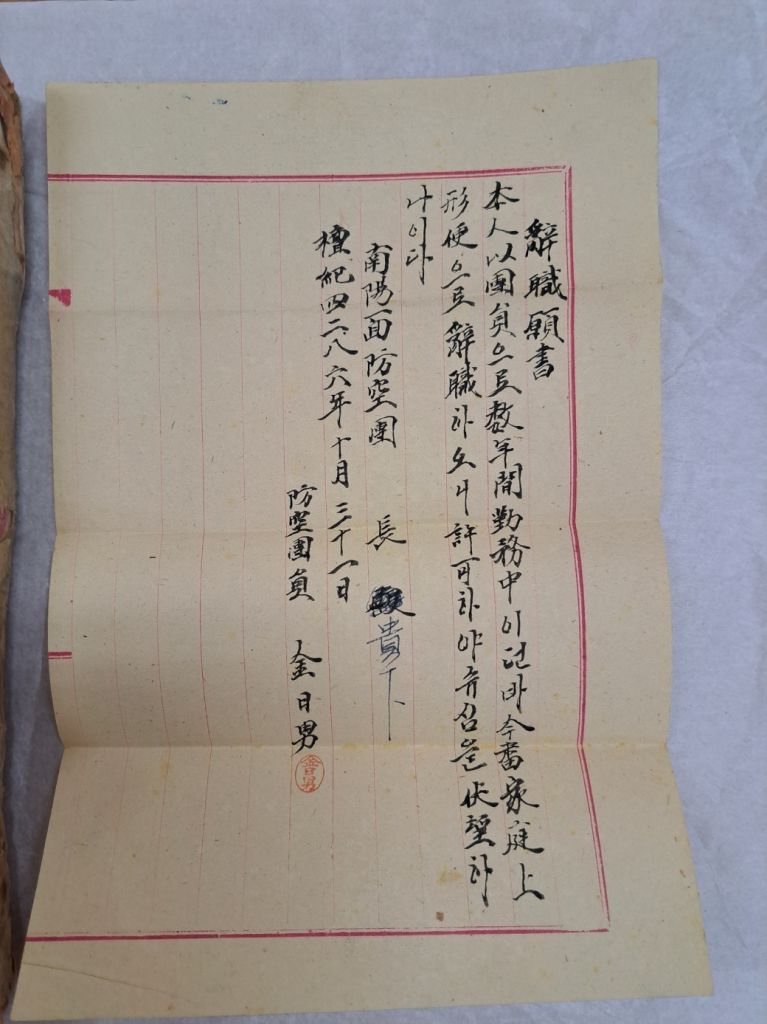 辭職願書
本人以團員으로數年間勤務中이던바今番家庭上
形便으로辭職하오니許可하야주심을伏望하
나이다
南陽面防空團 長 貴下
檀紀四二八六年十月三十一日
防空團員 金日男
金日男